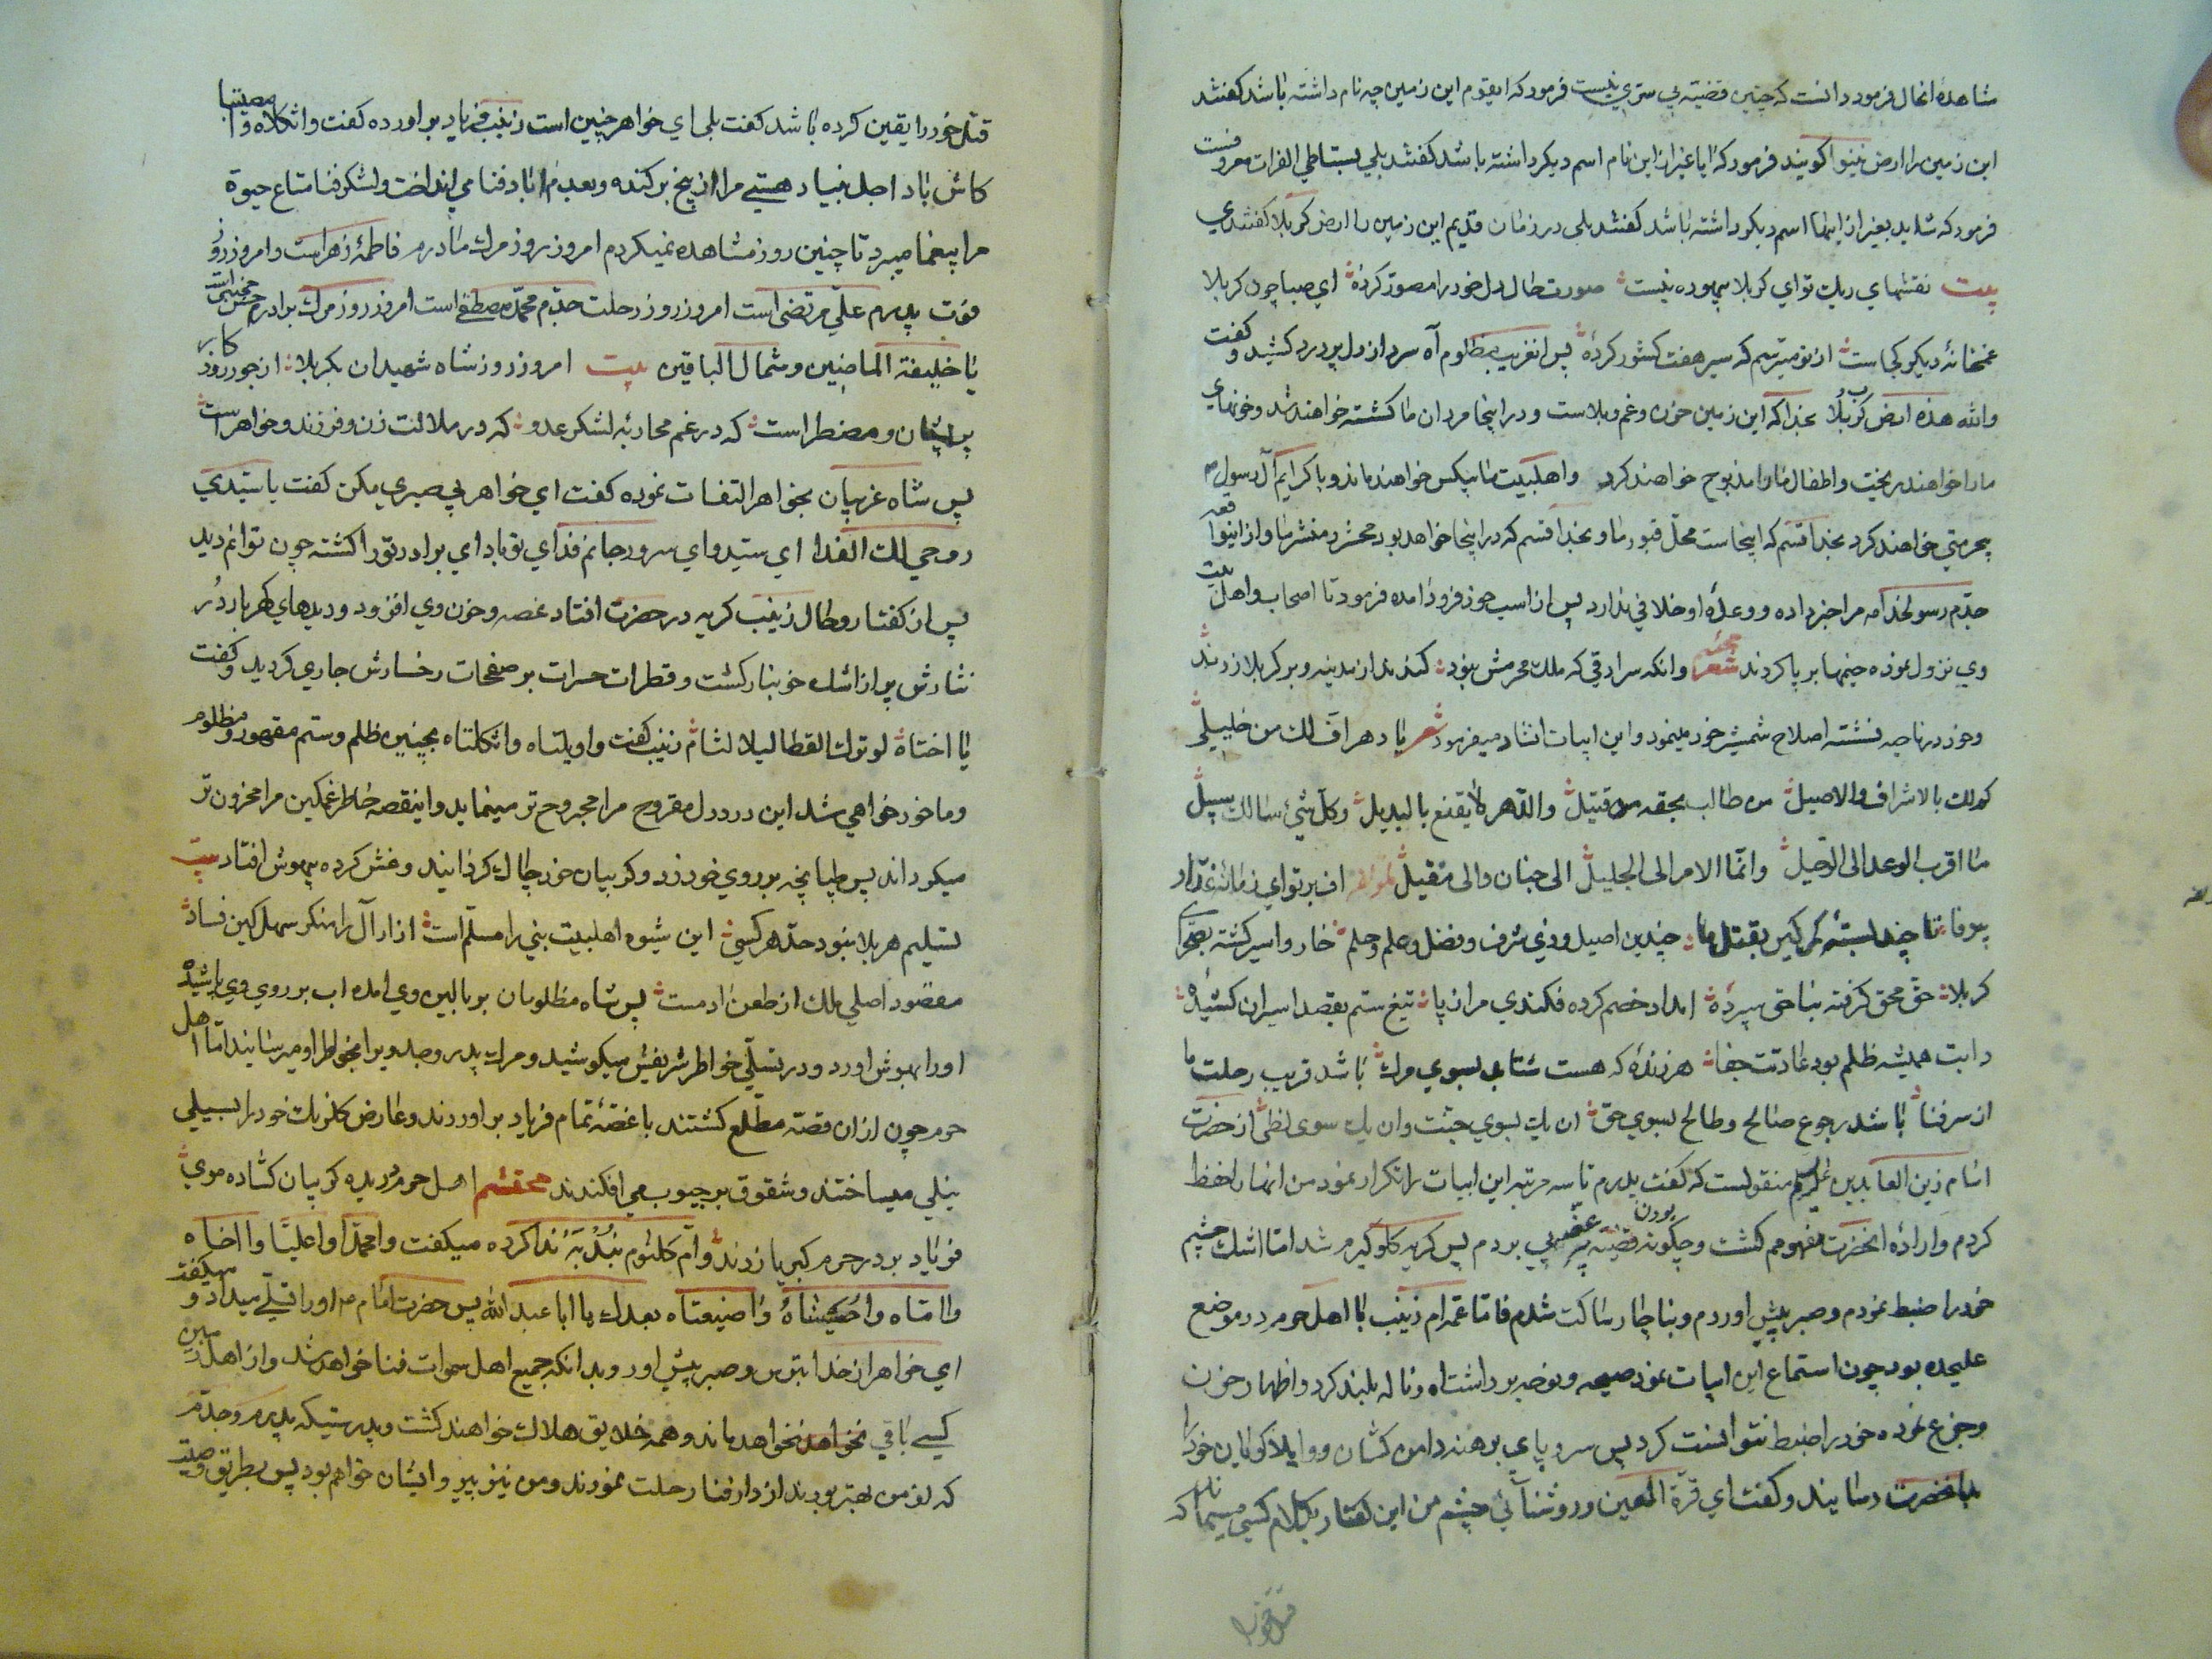 مشاهدهٔ انحال فرمود دانست که چنین قضیه بی سرّی نیست فرمود که ایقوم این زمین چه نام داشته باشد گفتند
این زمین را ارض نینوا گویند فرمود که ایا غیر از این نام اسم دیگر داشته باشد گفتند بلی بشاطی الفرات معروفست
فرمود که شاید بغیر از اینها اسم دیگر داشته باشد گفتند بلی در زمان قدیم این زمین را ارض کربلا گفتندی
بیت نقشهای ریك تو ای کربلا بیهوده نیست صورت حال دل خود را مصوّر کردهٔ ای صبا چون کربلا
غمخانهٔ دیگر کجاست از تو میپرسم که سیر هفت کشور کردهٔ پس انغریب مظلوم آه سرد از دل پر درد کشید و گفت
والله هذه ارض کرب و بلا بخدا که این زمین حزن و غم و بلاست و در اینجا مردان ما کشته خواهند شد و خونهای
ما را خواهند ریخت و اطفال ما را مذبوح خواهند کرد و اهلبیت ما بیکس خواهند ماند و با کرایم آل رسول
بیحرمتی خواهند کرد بخدا قسم که اینجاست محلّ قبور ما و بخدا قسم که در اینجا خواهد بود محشر و منشر ما و از اینواقعه
جدّم رسولخدا مرا خبر داده و وعدهٔ او خلافی ندارد پس از اسب خود فرود امده فرمود تا اصحاب و اهل بیت
وی نزول نموده خیمها بر پا کردند شعر وانکه سرادقی که ملك محرمش نبود کندند از مدینه و بر کربلا زدند
و خود در ناحیه نشسته اصلاح شمشیر خود مینمود و این ابیات انشاد میفرمود شعر یا دهر اف لك من خلیل
کم لك بالاشراق والاصیل من طالب بحقه من قتیل والدّهر لا یقنع بالبدیل وکلّ شیٔ سالك سبیل
ما اقرب الوعد الی الرّحیل وانّما الامر الی الجلیل الی جنان والی مقیل اف بر تو ای زمانهٔ غدّار
بیوفا تا چند بستهٔ کمر کین بقتل ما چندین اصیل و ذی شرف و فضل و علم و حلم خار و اسیر کشته بصحرای
کربلا حقّ محق گرفته بناحق سپردهٔ امداد خصم کرده فکندی مرا ز پا تیغ ستم بقصد اسیران کشیدهٔ
دابت همیشه ظلم بود عادتت جفا هر زندهٔ که هست شتابد بسوی مرك باشد قریب رحلت ما
از سر فنا باشد رجوع صالح و طالح بسوی حقّ ان یك بسوی جنّت و ان یك سوی لظی از حضرت
امام زین العابدین منقولست که گفت پدرم تا سه مرتبه این ابیات را تکرار نمود من انها را حفظ
کردم و ارادهٔ انحضرت مفهومم گشت و چگونه بودن قضیّه پی بردم پس گریه گلوگیرم شد امّا اشك چشم
خود را ضبط نمودم و صبر پیش اوردم و بناچار ساکت شدم فامّا عمّه ام زینب با اهل حرم در موضع
علیحده بود چون استماع این ابیات نمود صیحه و نوحه برداشت و ناله بلند کرد و اظهار حزن
و جزع نموده خود را ضبط نتوانست کرد پس سر و پای برهنه دامن کشان و واویلا گویان خود را
بانحضرت رسانید و گفت ای قرّة العین و روشنائی چشم من این گفتار بکلام کسی میماند که
قتل خود را یقین کرده باشد گفت بلی ای خواهر چنین است زینب فریاد بر اورده گفت واثکلاه وا مصیبتا
کاش باد اجل بنیاد هستی مرا از بیخ بر کنده و بعدم اباد فنا می انداخت و لشکر فنا متاع حیوة
مرا بیغما میبرد تا چنین روز مشاهده نمیکردم امروز روز مرك مادرم فاطمهٔ زهراست و امروز روز
فوت پدرم علیّ مرتضی است امروز روز رحلت جدّم محمّد مصطفی است امروز روز مرك برادرم حسن مجتبی است
یا خلیفة الماضین وثمال الباقین بیت امروز روز شاه شهیدان بکربلا از جور روزگار
پریشان و مضطر است که در غم محاربهٔ لشکر عدو که در ملالت زن و فرزند و خواهر است
پس شاه غریبان بخواهر التفات نموده گفت ای خواهر بی صبری مکن گفت یا سیّدی
روحی لك الفدا ای سیّد و ای سرور جانم فدای تو باد ای برادر تو را کشته چون توانم دید
پس از گفتار و حال زینب گریه در حضرت افتاد غصه و حزن وی افزود و دیدهای گهربار دُر
نثارش پر از اشك خونبار گشت و قطرات حسرات بر صفحات رخسارش جاری گردید و گفت
یا اختاه لو ترك القطا لیلا لنام زینب گفت واویلتاه واثکلتاه بچنین ظلم و ستم مقهور و مظلوم
و ماخوذ خواهی شد این درد دل مقروح مرا مجروح تر مینماید و اینقصه خاطر غمگین مرا محزون تر
میگرداند پس طپانچه بر روی خود زد و گریبان خود چاك گردانید و غش کرده بیهوش افتاد بیت
تسلیم هر بلا نبود حدّ هر کسی این شیوه اهلبیت نبی را مسلّم است ازار آل را منگر سهل کین فساد
مقصود اصلی ملك از طعن ادمست پس شاه مظلومان بر بالین وی امده اب بر روی وی پاشیده
او را بهوش اورد و در تسلّی خواطر شریفش میکوشید و مرك پدر و جدّ ویرا بخواطر او میرسانید امّا اهل
حرم چون از ان قصّه مطّلع گشتند با غصّهٔ تمام فریاد بر اوردند و عارض گلرنك خود را بسیلی
نیلی میساختند و شقوق بر جیوب می افکندند محتشم اهل حرم دریده گریبان گشاده موی
فریاد بر در حرم کبریا زدند و امّ کلثوم بنُدْبَه ندا کرده میگفت وامحمّدا واعلیّا وااخاه
وااماه واحُسیناهُ واضیعتاه بعدك یا ابا عبد الله پس حضرت امام او را تسلّی میداد و میگفت
ای خواهر از خدا بترس و صبر پیش اور و بدانکه جمیع اهل سموات فنا خواهد شد و از اهل زمین
کسی باقی نخواهد نخواهد ماند و همه خلایق هلاك خواهند گشت و بدرستیکه پدرم و جدّم
که از من بهتر بودند از دار فنا رحلت نمودند و من نیز پیرو ایشان خواهم بود پس بطریق وصیّت